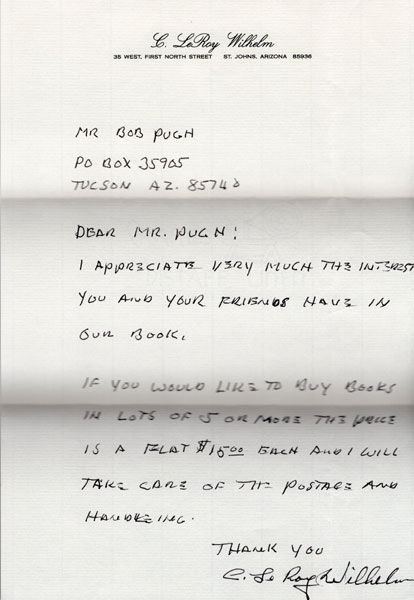 C. LeRoy Wilhelm
35 WEST, FIRST NORTH STREET ST. JOHNS, ARIZONA 85936
MR BOB PUGH
PO BOX 35905
TUCSON AZ. 85740
DEAR MR. PUGH:
I APPRECIATE VERY MUCH THE INTEREST
YOU AND YOUR FRIENDS HAVE IN
OUR BOOK.
IF YOU WOULD LIKE TO BUY BOOKS
IN LOTS OF 5 OR MORE THE PRICE
IS A FLAT $15.00 EACH AND I WILL
TAKE CARE OF THE POSTAGE AND
HANDLEING.
THANK YOU
C. Le Roy Wilhelm